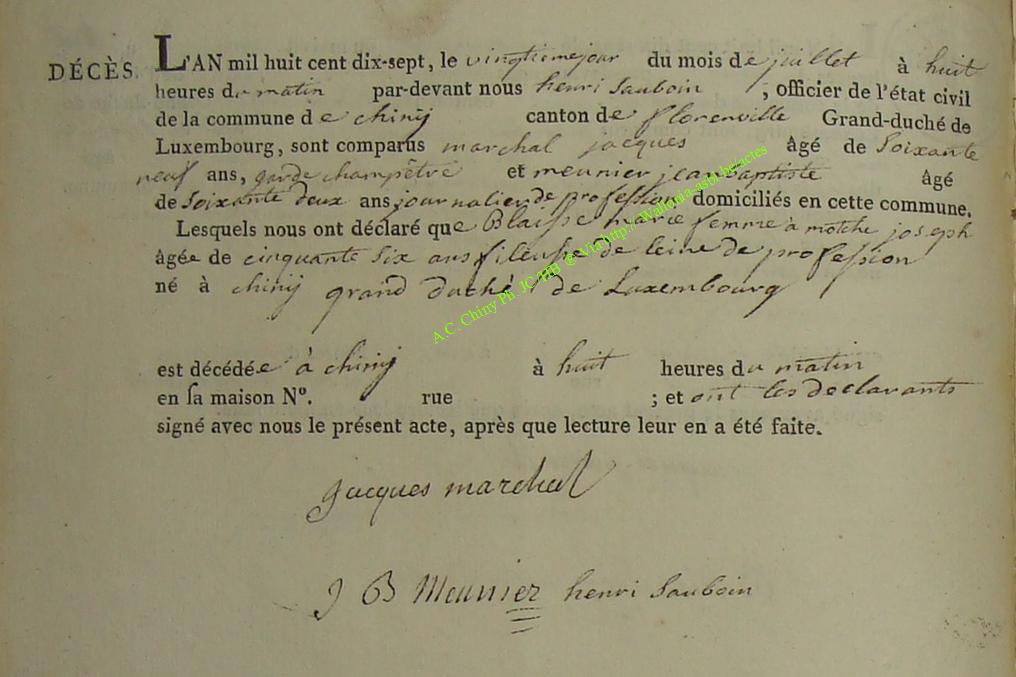 DÉCÈS. L'AN mil huit cent dix-sept, le vingtiemejour du mois de juillet à huit
heures du matin par-devant nous henri Sauboin , officier de l'état civil
de la commune de chinÿ canton de florenville Grand-duché de
Luxembourg, sont comparus marchal jacques âgé de Soixante
neuf ans, garde champêtre et meunier jean baptiste âgé
de Soixante deux ans journalier de profession domiciliés en cette commune.
Lesquels nous ont déclaré que Blaisse marie femme a motche joseph
âgée de cinquante six ans fileuse de leine de profession
né à chinÿ grand duché de Luxembourg
est décédée à chinÿ à huit heures du matin
en sa maison N°. rue ; et ont les declarants
signé avec nous le présent acte, après que lecture leur en a été faite.
jacques marchal
J B Meunier henri Sauboin
A.C. Chiny Ph. JC HB @ Via http://Wallonia-asbl.be/actes